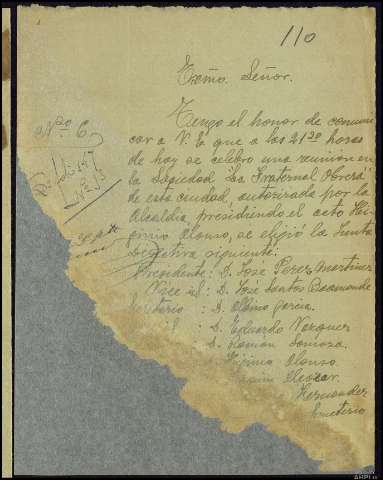 110
Exmo. Señor.
Nº 6
Tengo el honor de comuni
car a V. E. que a las 21'30 horas
de hoy se celebro una reunion en
la Sociedad "La Fraternal Obrera"
de esta ciudad, autorizada por la
Alcaldia, presidiendo el acto Hi
ginio Alonso, se elijió la Junta
Directiva siguiente:
Presidente: D. José Perez Martinez
Vice id: D. José Santos Baamonde
: D. Albino Garcia.
: D. Eduardo Vazquez
D. Roman
Alonso
Hernandez
AHPL